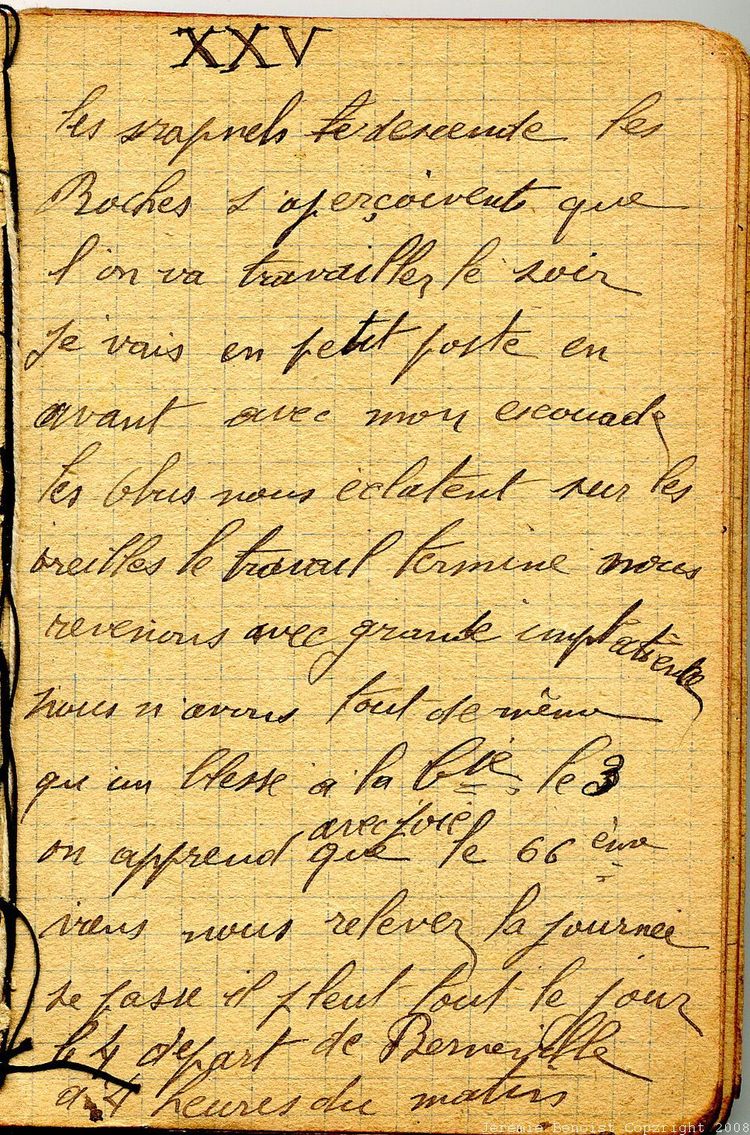 XXV
les srapnels te descende les
Boches s'aperçoivents que
l'on va travailler le soir
Je vais en petit poste en
avant avec mon escouade
les Obus nous éclatent sur les
oreilles le travail termine nous
revenons avec grande impatiente
nous n'avons tout de même
qu'un blesse à la Cie le 3
on apprend avec joie que le 66 ème
viens nous relever la journée
se passe il pleut tout le jour
le 4 départ de Berneville
a 4 heures du matins
Jeremie Benoist Copyright 2008